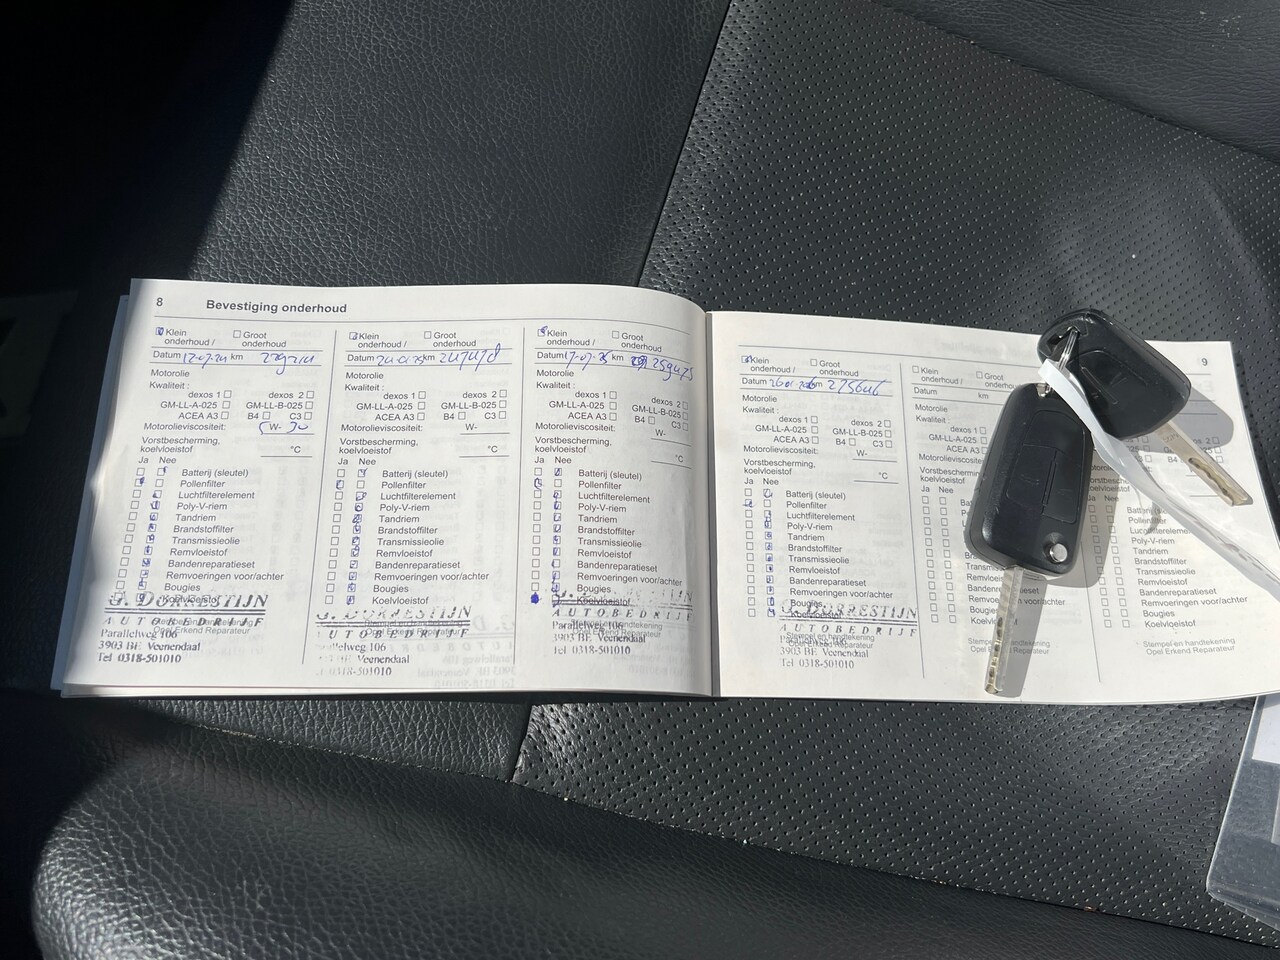 8 Bevestiging onderhoud
Klein onderhoud / Groot onderhoud
Datum 12-07-24 km
Motorolie
Kwaliteit :
dexos 1 dexos 2
GM-LL-A-025 GM-LL-B-025
ACEA A3 B4 C3
Motorolieviscositeit: 5 W- 30
Vorstbescherming, koelvloeistof °C
Ja Nee
Batterij (sleutel)
Pollenfilter
Luchtfilterelement
Poly-V-riem
Tandriem
Brandstoffilter
Transmissieolie
Remvloeistof
Bandenreparatieset
Remvoeringen voor/achter
Bougies
Koelvloeistof
G. DORRESTIJN
AUTOBEDRIJF
Parallelweg 106
3903 BE Veenendaal
Tel 0318-501010
Klein onderhoud / Groot onderhoud
Datum km
Motorolie
Kwaliteit :
dexos 1 dexos 2
GM-LL-A-025 GM-LL-B-025
ACEA A3 B4 C3
Motorolieviscositeit: W-
Vorstbescherming, koelvloeistof °C
Ja Nee
Batterij (sleutel)
Pollenfilter
Luchtfilterelement
Poly-V-riem
Tandriem
Brandstoffilter
Transmissieolie
Remvloeistof
Bandenreparatieset
Remvoeringen voor/achter
Bougies
Koelvloeistof
G. DORRESTIJN
AUTOBEDRIJF
lelweg 106
BE Veenendaal
0318-501010
Klein onderhoud / Groot onderhoud
Datum 17-07-25 km 259475
Motorolie
Kwaliteit :
dexos 1 dexos 2
GM-LL-A-025 GM-LL-B-025
ACEA A3 B4 C3
Motorolieviscositeit: W-
Vorstbescherming, koelvloeistof °C
Ja Nee
Batterij (sleutel)
Pollenfilter
Luchtfilterelement
Poly-V-riem
Tandriem
Brandstoffilter
Transmissieolie
Remvloeistof
Bandenreparatieset
Remvoeringen voor/achter
Bougies
Koelvloeistof
DORRESTIJN
AUTOBEDRIJF
Parallelweg 106
3903 BE Veenendaal
Tel 0318-501010
9
Klein onderhoud / Groot onderhoud
Datum km
Motorolie
Kwaliteit :
dexos 1 dexos 2
GM-LL-A-025 GM-LL-B-025
ACEA A3 B4 C3
Motorolieviscositeit: W-
Vorstbescherming, koelvloeistof °C
Ja Nee
Batterij (sleutel)
Pollenfilter
Luchtfilterelement
Poly-V-riem
Tandriem
Brandstoffilter
Transmissieolie
Remvloeistof
Bandenreparatieset
Remvoeringen voor/achter
Bougies
Koelvloeistof
G. DORRESTIJN
AUTOBEDRIJF
Stempel en handtekening
Opel Erkend Reparateur
Parallelweg 106
3903 BE Veenendaal
Tel 0318-501010
Klein onderhoud / Groot
Datum km
Motorolie
Kwaliteit :
dexos 1
GM-LL-A-025
ACEA A3
Motorolieviscositeit:
Vorstbescherming, koelvloeistof
Ja Nee
Remvoeringen voor/achter
Bougies
Koelvloeistof
Stempel en handtekening
Opel Erkend Reparateur
dexos 2
Ja Nee
Pollenfilter
Luchtfilterelement
Poly-V-riem
Tandriem
Brandstoffilter
Transmissieolie
Remvloeistof
Bandenreparatieset
Remvoeringen voor/achter
Bougies
Koelvloeistof
Stempel en handtekening
Opel Erkend Reparateur